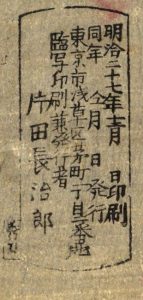 明治二十七年十一月　日印刷
同年　仝月　日発行
東京市浅草区　町一丁目三番地
臨写印刷兼発行者
片田長治郎